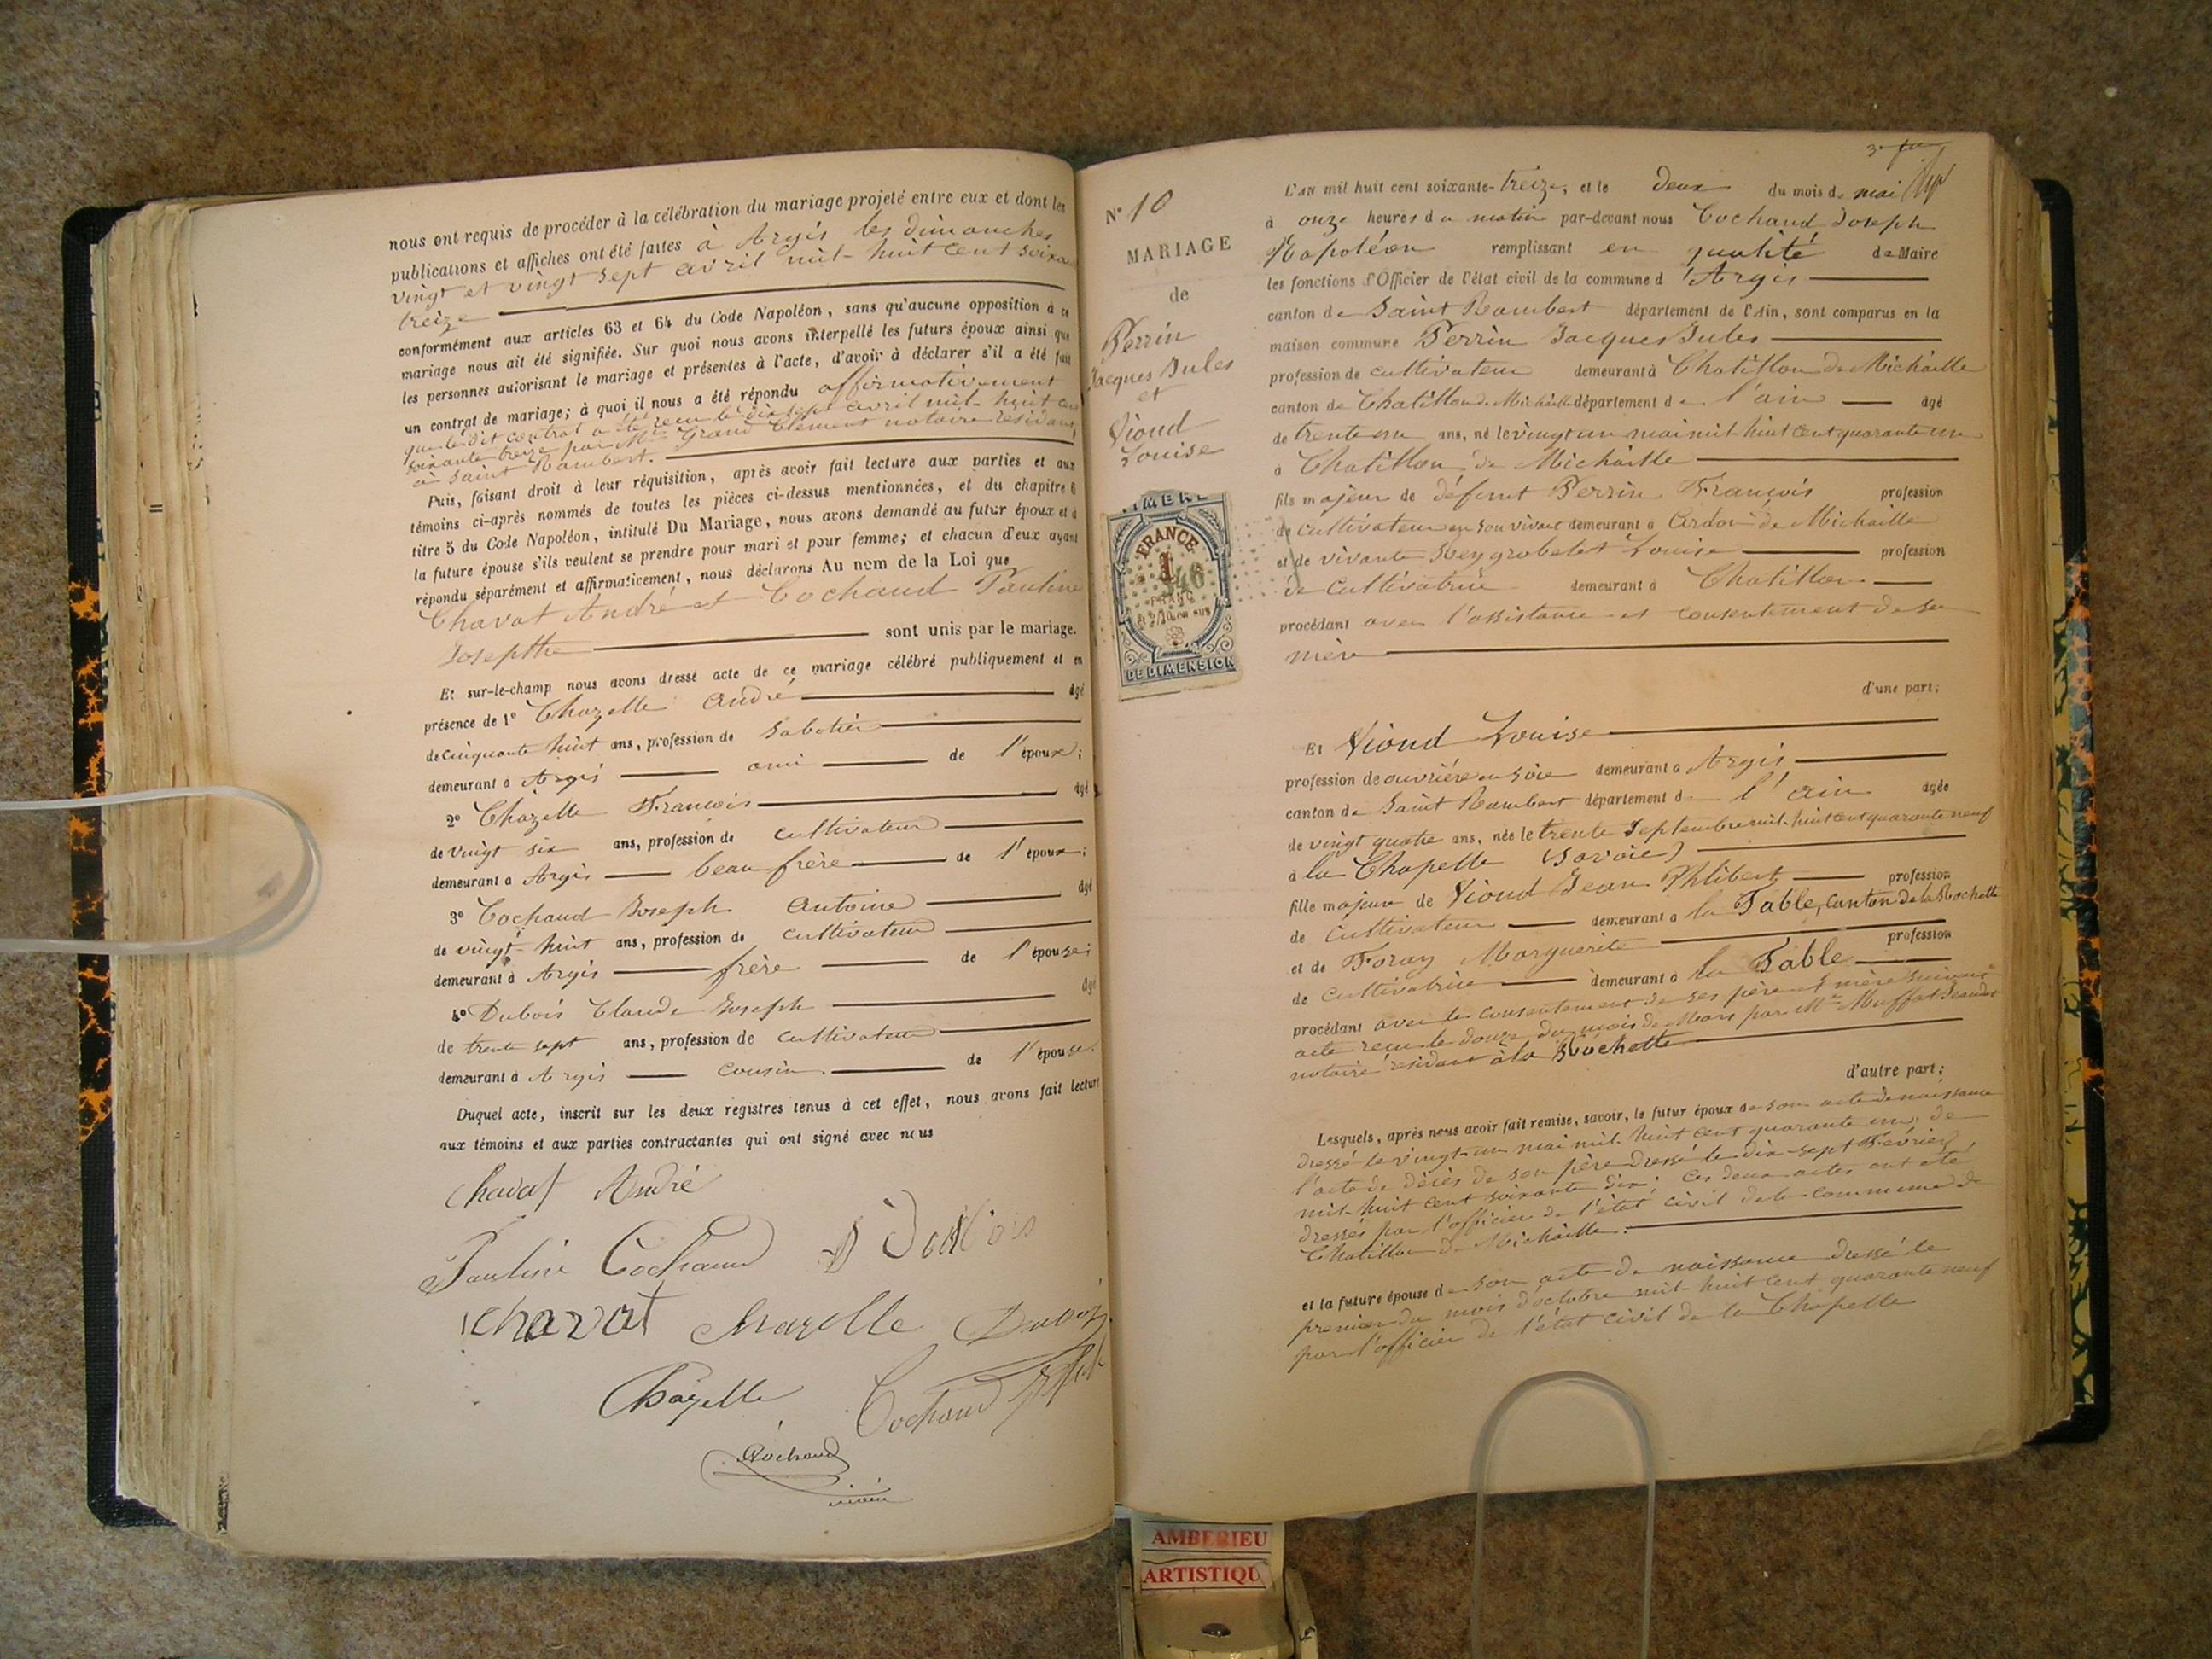 nous ont requis de procéder à la célébration du mariage projeté entre eux et dont les
publications et affiches ont été faites à Argis les dimanches
vingt et vingt sept avril mil-huit cent soixan
treize
conformément aux articles 63 et 64 du Code Napoléon, sans qu'aucune opposition à ce
mariage nous ait été signifiée. Sur quoi nous avons interpellé les futurs époux ainsi que
les personnes autorisant le mariage et présentes à l'acte, d'avoir à déclarer s'il a été fait
un contrat de mariage; à quoi il nous a été répondu affirmativement
que le dit contrat a été reçu le dix sept avril mil-huit cent
soixante treize par Me Grand Clément notaire résidant
à Saint Rambert.
Puis, faisant droit à leur réquisition, après avoir fait lecture aux parties et aux
témoins ci-après nommés de toutes les pièces ci-dessus mentionnées, et du chapitre 6
titre 5 du Code Napoléon, intitulé Du Mariage, nous avons demandé au futur époux et à
la future épouse s'ils veulent se prendre pour mari et pour femme; et chacun d'eux ayant
répondu séparément et affirmativement, nous déclarons Au nom de la Loi que
Chavat André et Cochaud Pauline
Josepthe sont unis par le mariage.
Et sur-le-champ nous avons dressé acte de ce mariage célébré publiquement et en
présence de 1° Chazelle André âgé
de cinquante huit ans, profession de sabotier
demeurant à Argis ami de l'époux;
2° Chazelle François âgé
de vingt six ans, profession de cultivateur
demeurant à Argis beau frère de l'époux;
3° Cochaud Joseph Antoine âgé
de vingt-huit ans, profession de cultivateur
demeurant à Argis frère de l'épouse;
4° Dubois Claude Joseph âgé
de trente sept ans, profession de cultivateur
demeurant à Argis cousin de l'épouse.
Duquel acte, inscrit sur les deux registres tenus à cet effet, nous avons fait lecture
aux témoins et aux parties contractantes qui ont signé avec nous
Chavat André
Pauline Cochaud Dubois
chavat Chazelle
Chazelle Cochaud
Cochaud
maire
N° 10
MARIAGE
de
Perrin
Jacques Jules
et
Viond
Louise
TIMBRE
FRANCE
1
FRANC
DE DIMENSION
L'an mil huit cent soixante-treize, et le deux du mois de mai
à onze heures du matin par-devant nous Cochaud Joseph
Napoléon remplissant en qualité de Maire
les fonctions d'Officier de l'état civil de la commune d'Argis
canton de Saint Rambert département de l'Ain, sont comparus en la
maison commune Perrin Jacques Jules
profession de cultivateur demeurant à Chatillon de Michaille
canton de Chatillon de Michaille département de l'ain âgé
de trente un ans, né le vingt un mai mil huit cent quarante un
à Chatillon de Michaille
fils majeur de défunt Perrin François profession
de cultivateur en son vivant demeurant à Ardon de Michaille
et de vivante Reygrobelet Louise profession
de cultivatrice demeurant à Chatillon
procédant avec l'assistance et consentement de sa
mère
d'une part;
Et Viond Louise
profession de ouvrière en soie demeurant à Argis
canton de Saint Rambert département de l'ain âgée
de vingt quatre ans, née le trente Septembre mil-huit cent quarante neuf
à la Chapelle (Savoie)
fille majeure de Viond Jean Phlibert profession
de cultivateur demeurant à la Table, canton de la Rochette
et de Foray Marguerite profession
de cultivatrice demeurant à la Table
procédant avec le consentement de ses père et mère suivant
acte reçu le douze du mois de Mars par Me Muffat Jeandet
notaire résidant à la Rochette
d'autre part;
Lesquels, après nous avoir fait remise, savoir, le futur époux de son acte de naissance
dressé le vingt-un mai mil-huit cent quarante un; de
l'acte de décès de son père dressé le dix-sept Février
mil-huit cent soixante dix; ces deux actes ont été
dressés par l'officier de l'état civil de la commune de
Chatillon de Michaille.
et la future épouse de son acte de naissance dressé le
premier du mois d'octobre mil-huit cent quarante neuf
par l'officier de l'état civil de la Chapelle
AMBERIEU
ARTISTIQU